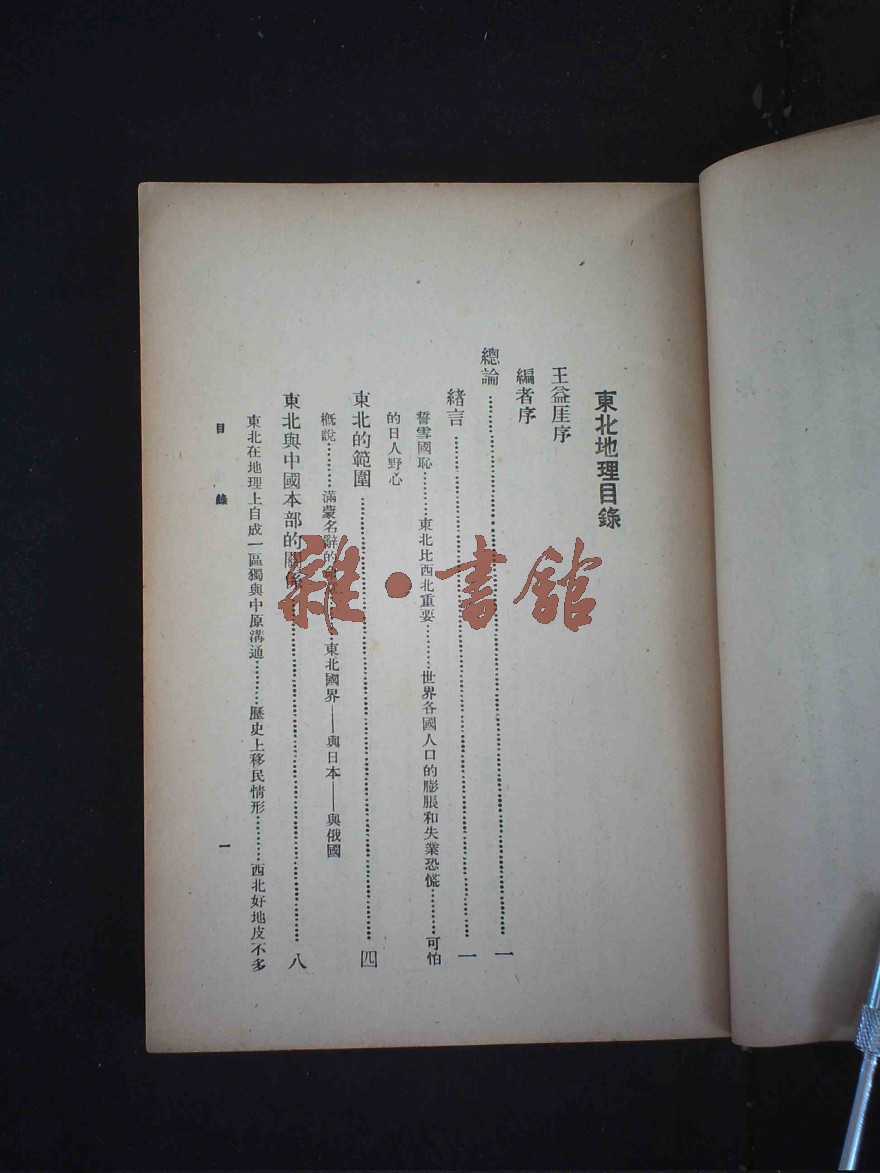 東北地理目錄
王益厓序
編者序
總論……………………一
緒言……………………一
誓雪國恥………東北比西北重要………世界各國人口的膨脹和失業恐慌………可怕
的日人野心
東北的範圍……………………四
概說………滿蒙名辭的……東北國界——與日本——與俄國
東北與中國本部的關係……………………八
東北在地理上自成一區獨與中原溝通………歷史上移民情形………西北好地皮不多
目錄 一
雜·書館